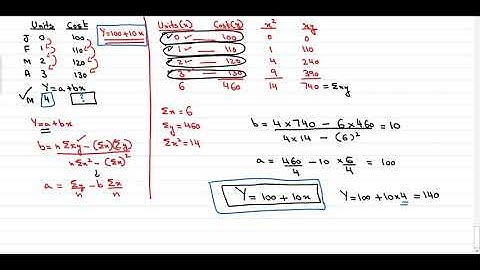 Units Cost
J 0 100
F 1 110
M 2 120
A 3 130
Y=a+bx
M 4 ?
Y=100+10x
Y=a+bx
b= nΣxy-(Σx)(Σy)
nΣx²-(Σx)²
a = Σy/n - b Σx/n
Units(x) Cost(y) x² xy
0 100 0 0
1 110 1 110
2 120 4 240
3 130 9 390
6 460 14 740 =Σxy
Σx=6
Σy=460
Σx²=14
b= 4×740 - 6×460 =10
4×14 - (6)²
a = 460/4 - 10 × 6/4 = 100
Y= 100 + 10x
Y=100+10×4 =140